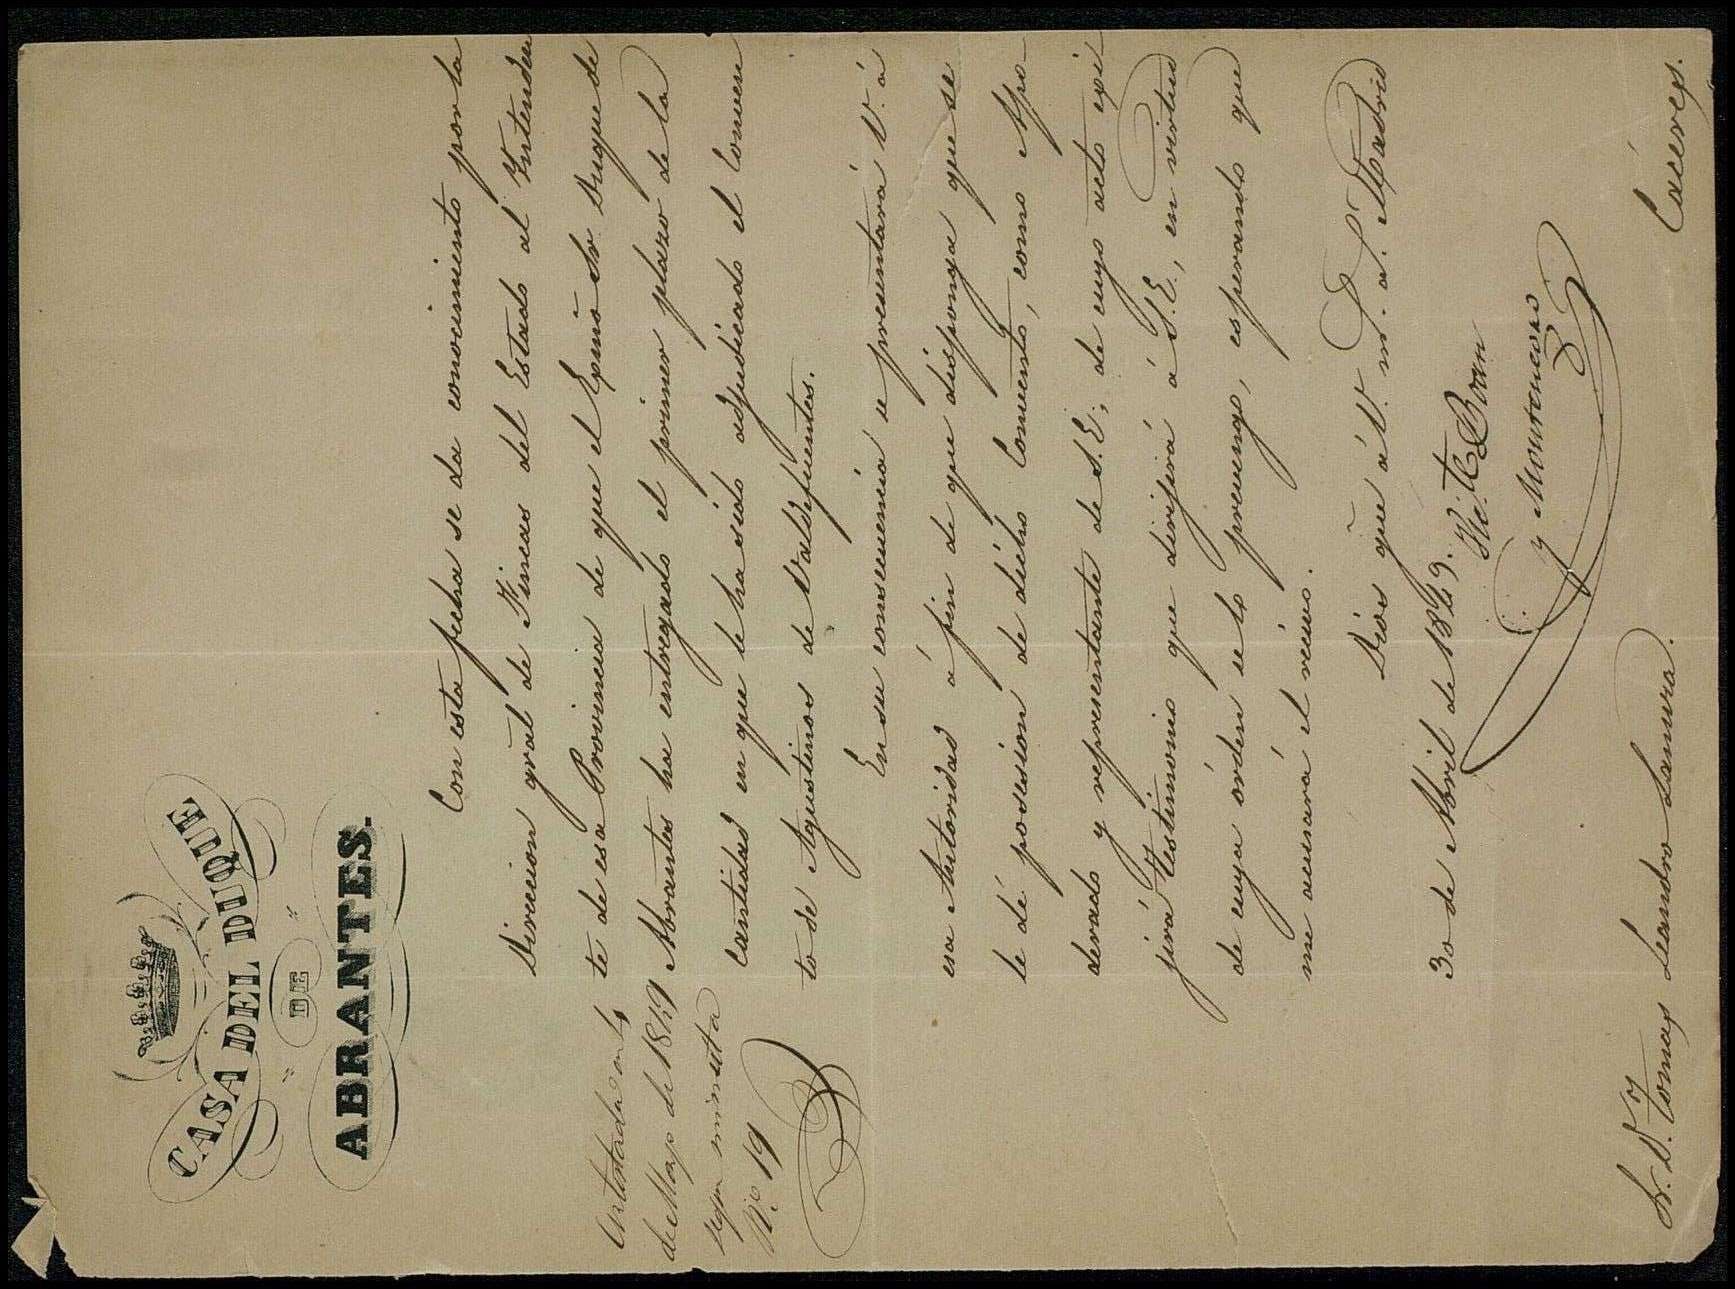 CASA DEL DUQUE
DE
ABRANTES.
Con esta fecha se da conocimiento por la
Direccion gral de Fincas del Estado al Yntenden
te de esa Provincia de que el Exmo Sr Duque de
Abrantes ha entregado el primer plazo de la
Cantidad en que le ha sido adjudicado el Conven
to de Agustinos de Valdefuentes.
En su consecuencia se presentará V. á
esa Autoridad á fin de que disponga que se
le dé posesion de dicho Convento, como Apo
derado y representante de S.E., de cuyo acto exi
jirá Testimonio que dirijirá á S.E., en virtud
de cuya órden se lo prevengo, esperando que
me acusará el recivo.
Dios gue á V. m. a. Madrid
30 de Abril de 1849.
y Montenegro
Contestada en 4
de Mayo de 1849
segun minuta
N.º 19
Sr. Dn Tomas Leandro Samura.
Caceres.